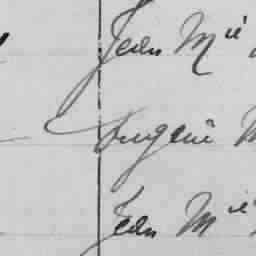 Jean Mie
Eugène M
Jean Mie